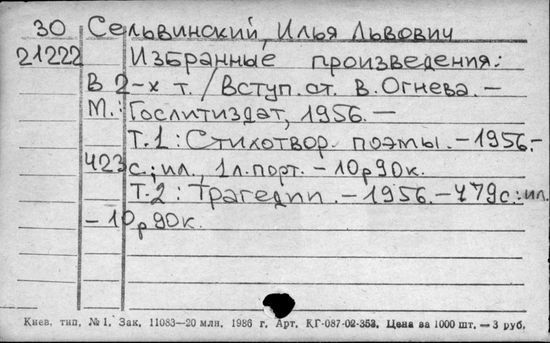 30 Сельвинский, Илья Львович
21222 Избранные произведения:
В 2-х т. / Вступ. ст. В. Огнева. –
М.: Гослитиздат, 1956. –
Т.1: Стихотвор. поэмы. – 1956. –
423 с.: ил., 1л. порт. – 10р90к.
Т.2: Трагедии. – 1956. – 479с.: ил.
– 10р90к.
Киев. тип. № 1. Зак. 11083—20 млн. 1986 г. Арт. КГ-087-02-353. Цена за 1000 шт. — 3 руб.